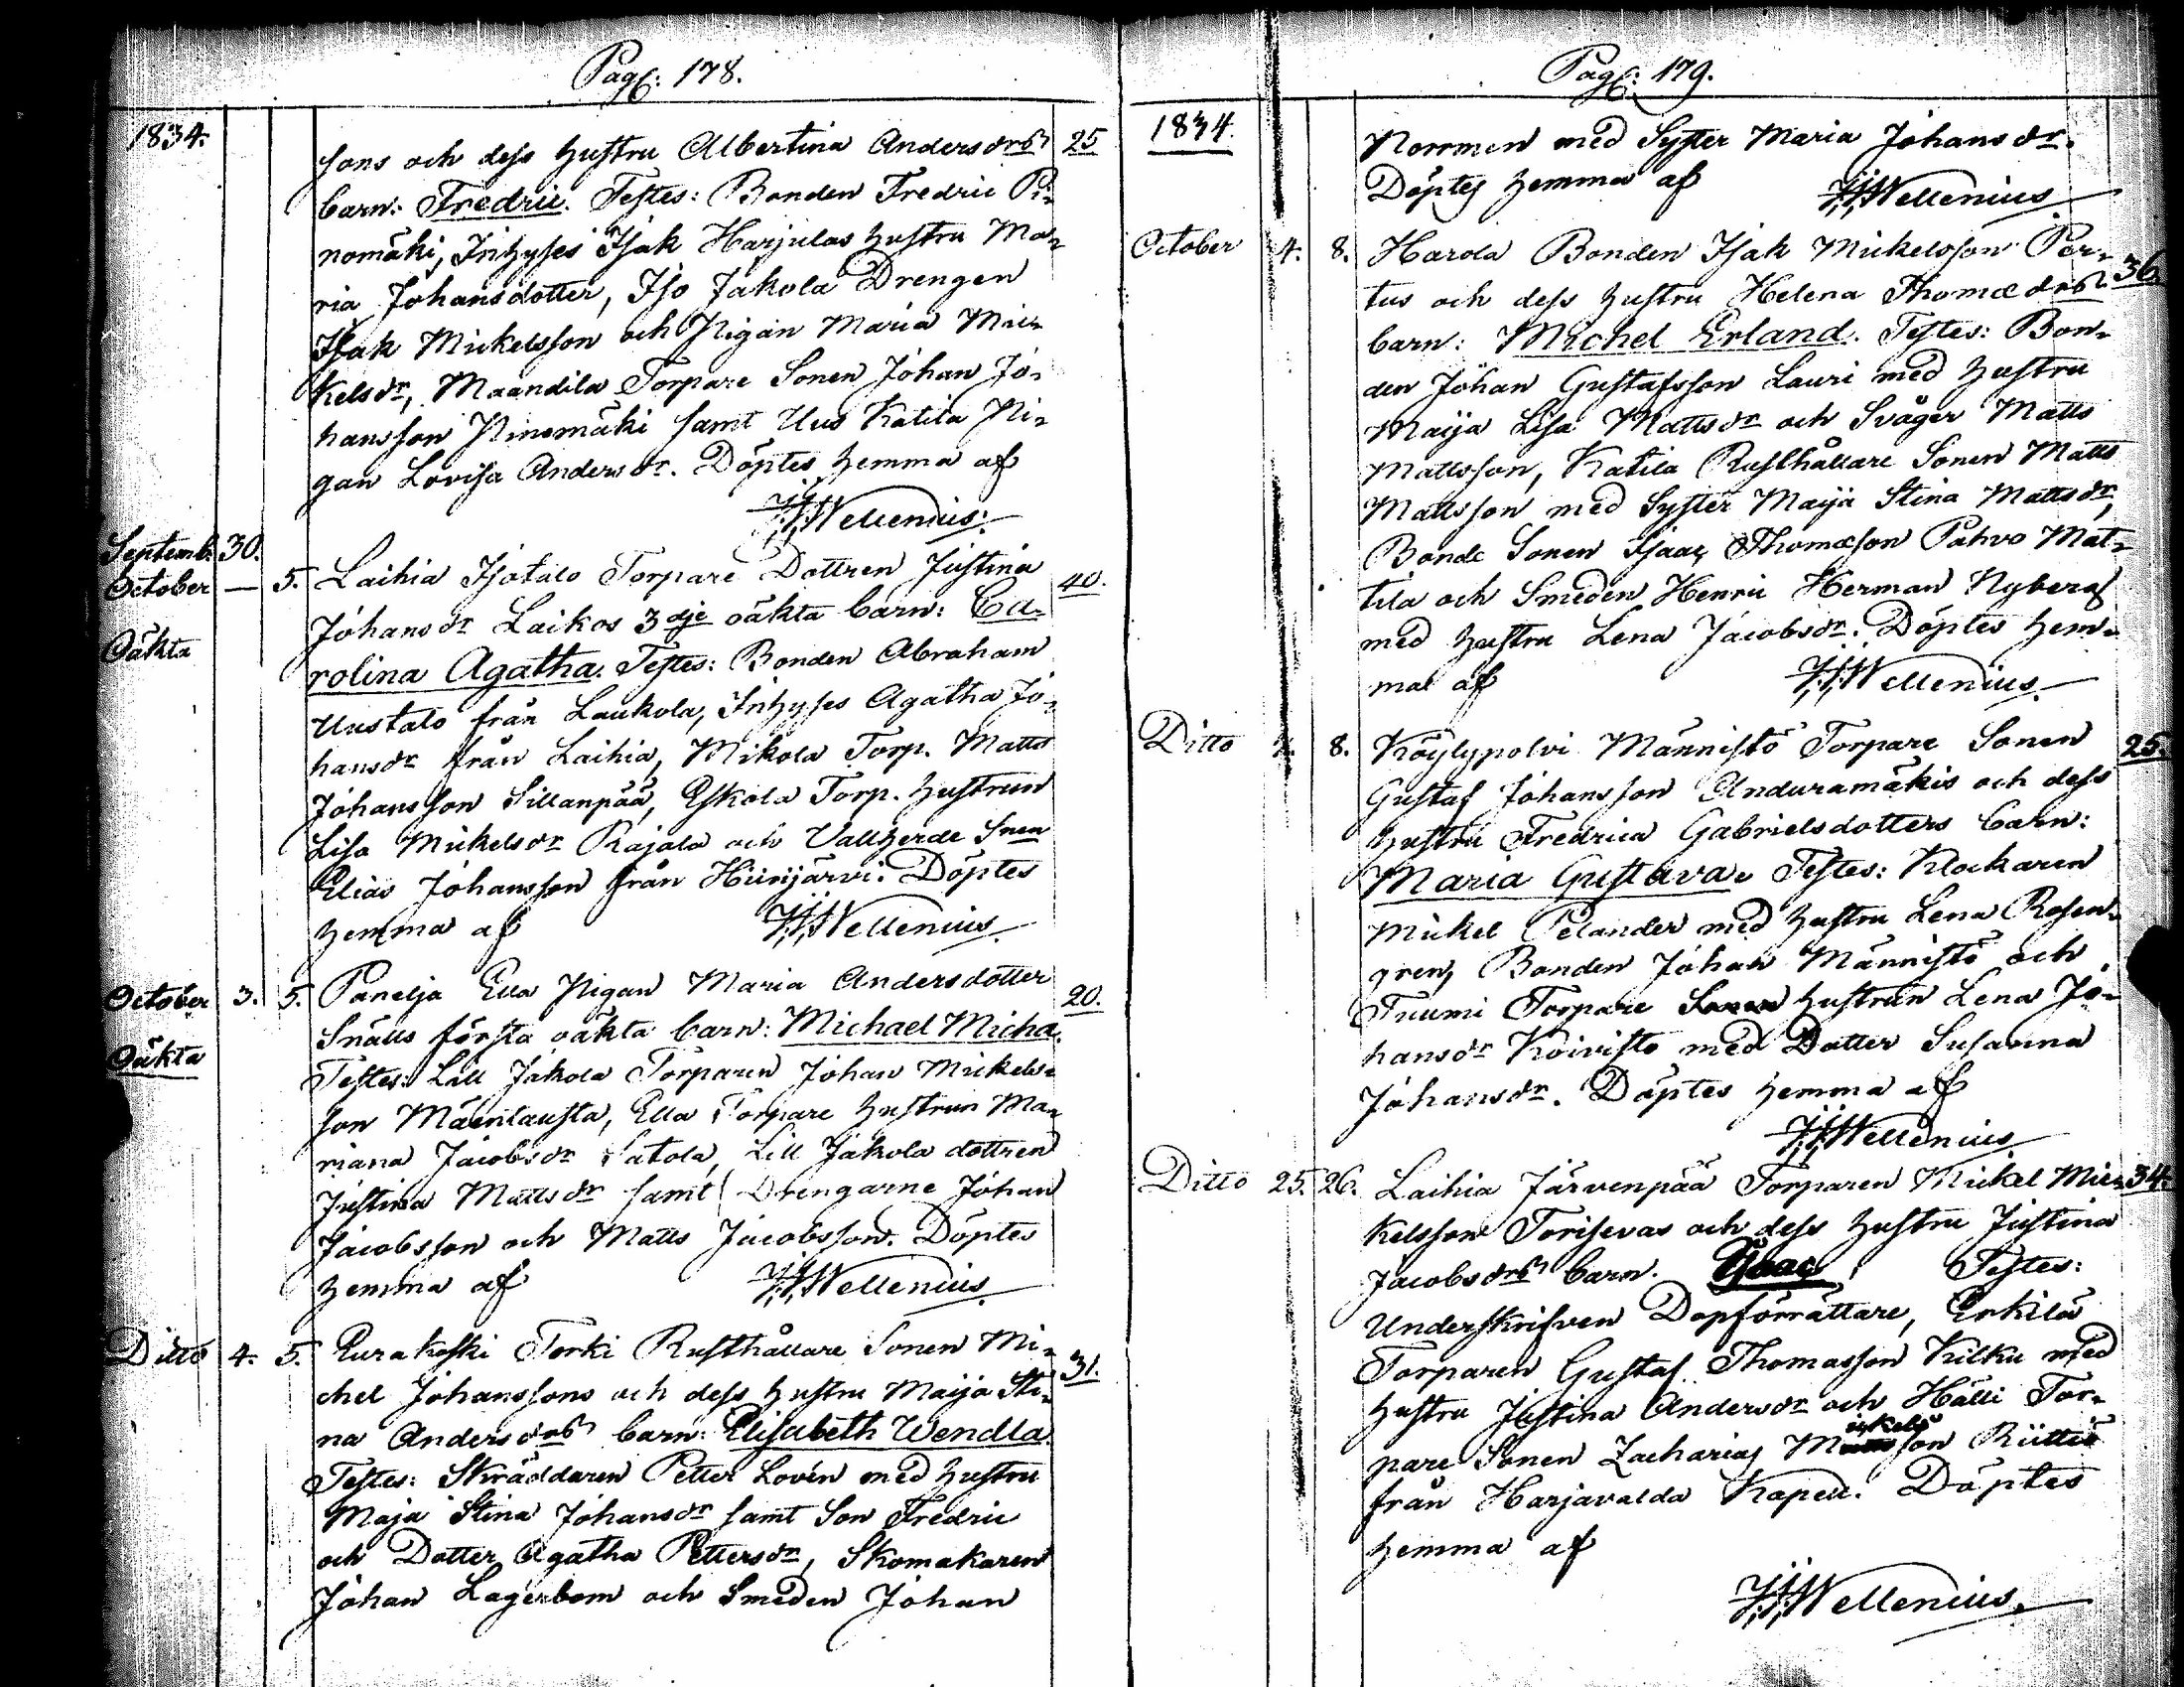 Pag: 178.
1834.
sons och dess hustru Albertina Andersdrs 25
barn: Fredric. Testes: Bonden Fredric Pi-
nomäki, Inhyses Isak Harjulas hustru Ma-
ria Johansdotter, Iso Jakola Drengen
Isak Mickelsson och Pigan Maria Mic-
kelsdr, Maandila Torpare Sonen Johan Jo-
hansson Ninomäki samt Uus Katila Pi-
gan Lovisa Andersdr. Döptes hemma af
J.J. Wellenius.
Septemb. 30.
October — 5. Laihia Isotalo Torpare Dottren Justina 40.
Johansdr Laikos 3dje oäkta barn: Ca-
Oäkta
rolina Agatha. Testes: Bonden Abraham
Uustalo från Laukola, Inhyses Agatha Jo-
hansdr från Laihia, Mikola Torp. Matts
Johansson Sillanpää, Eskola Torp. hustrun
Lisa Mickelsdr Rajala och Vallherde Snen
Elias Johansson från Hiirijärvi. Döptes
hemma af J.J. Wellenius
October 3. 5. Panelja Ella Pigan Maria Andersdotter 20.
Snälls första oäkta barn: Michael Micha.
Oäkta
Testes: Lill Jakola Torparen Johan Mickels-
son Mäentausta, Ella Torpare hustrun Ma-
riana Jacobsdr Satola, Lill Jakola dottren
Justina Mattsdr samt Drengarne Johan
Jacobsson och Matts Jacobsson. Döptes
hemma af J.J. Wellenius
Ditto 4. 5. Eurakoski Torki Rusthållare Sonen Mi- 31.
chel Johanssons och dess hustru Maija Sti-
na Andersdrs barn: Elisabeth Wendla.
Testes: Skräddaren Petter Lovén med hustru
Maja Stina Johansdr samt Son Fredric
och Dotter Agatha Pettersdr, Skomakaren
Johan Lagerbom och Smeden Johan
Pag: 179.
1834.
Norrmen med Syster Maria Johansdr.
Döptes hemma af J.J. Wellenius
October 4. 8. Harola Bonden Isak Mickelsson Per- 36.
tus och dess hustru Helena Thomædrs
barn: Michel Erland. Testes: Bon-
den Johan Gustafsson Lauri med hustru
Maija Lisa Mattsdr och Svåger Matts
Mattsson, Katila Rusthållare Sonen Matts
Mattsson med Syster Maija Stina Mattsdr,
Bonde Sonen Isaac Thomæson Pahvo Mat-
tila och Smeden Henric Herman Nyberg
med hustru Lena Jacobsdr. Döptes hem-
ma af J.J. Wellenius
Ditto 8. Köylypolvi Männistö Torpare Sonen 25.
Gustaf Johansson Anduramäkis och dess
hustru Fredrica Gabrielsdotters barn:
Maria Gustava. Testes: Klockaren
Mickel Pelander med hustru Lena Rosen-
gren, Bonden Johan Männistö och
Tuumi Torpare hustrun Lena Jo-
hansdr Koivisto med Dotter Susanna
Johansdr. Döptes hemma af
J.J. Wellenius
Ditto 25. 26. Laihia Järvenpää Torparen Mickel Mic- 34.
kelsson Torisevas och dess hustru Justina
Jacobsdrs barn. Isaac Testes:
Underskrifven Dopförrättare, Erkilä
Torparen Gustaf Thomasson Kilku med
hustru Justina Andersdr och Hälli Tor-
pare Sonen Zacharias Mickelsson Riittiö
från Harjavalda Kapell. Döptes
hemma af
J.J. Wellenius.